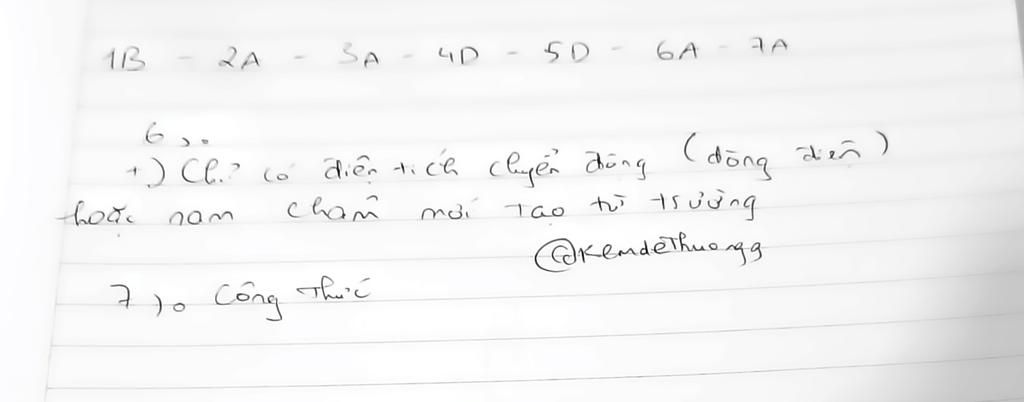 1B - 2A - 3A - 4D - 5D - 6A - 7A
6 ).
+) Chỉ có điện tích chuyển động (dòng điện)
hoặc nam châm mới tạo từ trường
@Kemdethuongg
7 ). Công thức